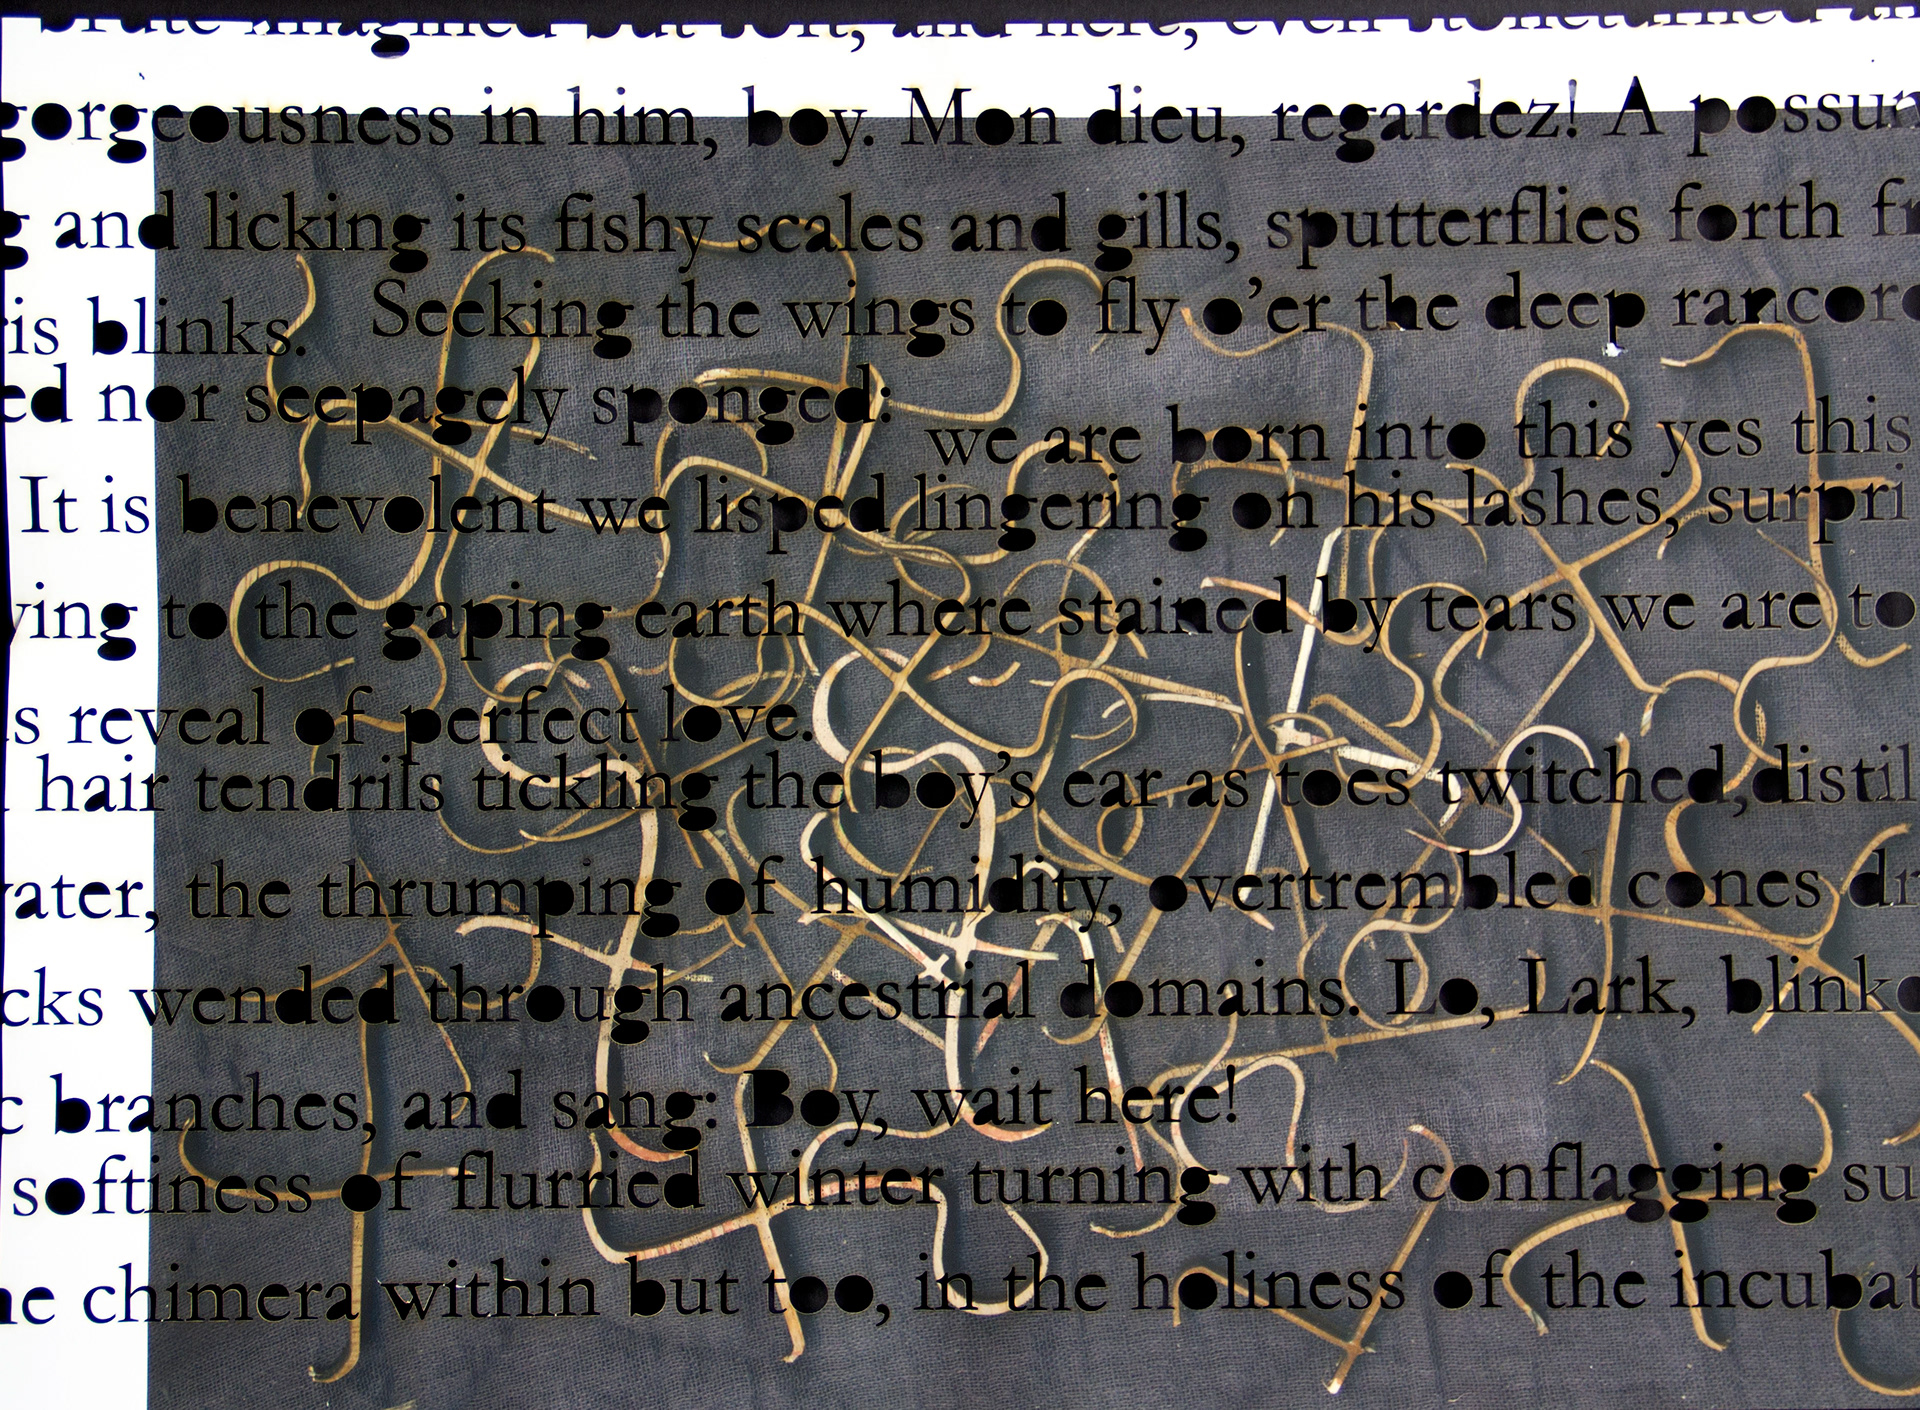 brute imagined but soft, and here, even stoneturned an
gorgeousness in him, boy. Mon dieu, regardez! A possum
g and licking its fishy scales and gills, sputterflies forth fr
is blinks. Seeking the wings to fly o'er the deep rancoro
ed nor seepagely sponged:
we are born into this yes this
It is benevolent we lisped lingering on his lashes, surpri
ying to the gaping earth where stained by tears we are to
s reveal of perfect love.
hair tendrils tickling the boy's ear as toes twitched,distil
vater, the thrumping of humidity, overtrembled cones dr
cks wended through ancestrial domains. Lo, Lark, blinko
c branches, and sang: Boy, wait here!
softiness of flurried winter turning with conflagging su
ne chimera within but too, in the holiness of the incubat